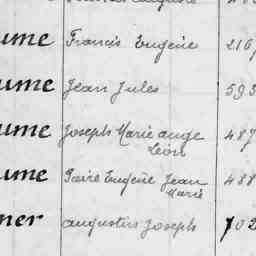 ume Francis Eugène 216
ume Jean Jules 593
ume Joseph Marie ange 487
Léon
ume Eugène Jean 488
Marie
ner augustin Joseph 702